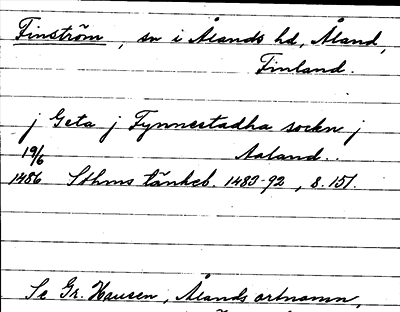 Finström, sn i Ålands hd, Åland,
Finland.
j Geta j Fynnestadha sockn j
19/6 Aaland..
1486 Sthms tänkeb. 1483-92, s. 151.
Se Gr. Hausen, Ålands ortnamn,